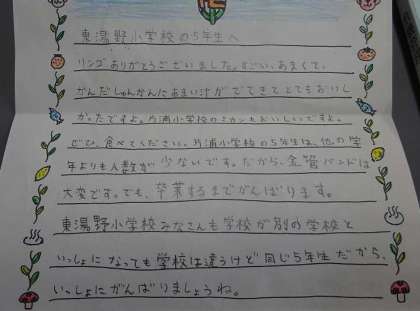 東湯野小学校の5年生へ
リンゴありがとうございました。すごい、あまくて、
かんだしゅんかんにあまい汁がでてきてとてもおいし
かったですよ。片浦小学校のミカンもおいしいですよ。
ぜひ、食べてください。片浦小学校の5年生は、他の学
年よりも人数が少ないです。だから、金管バンドは
大変です。でも、卒業するまでがんばります。
東湯野小学校みなさんも学校が別の学校と
いっしょになっても学校は違うけど同じ5年生だから、
いっしょにがんばりましょうね。